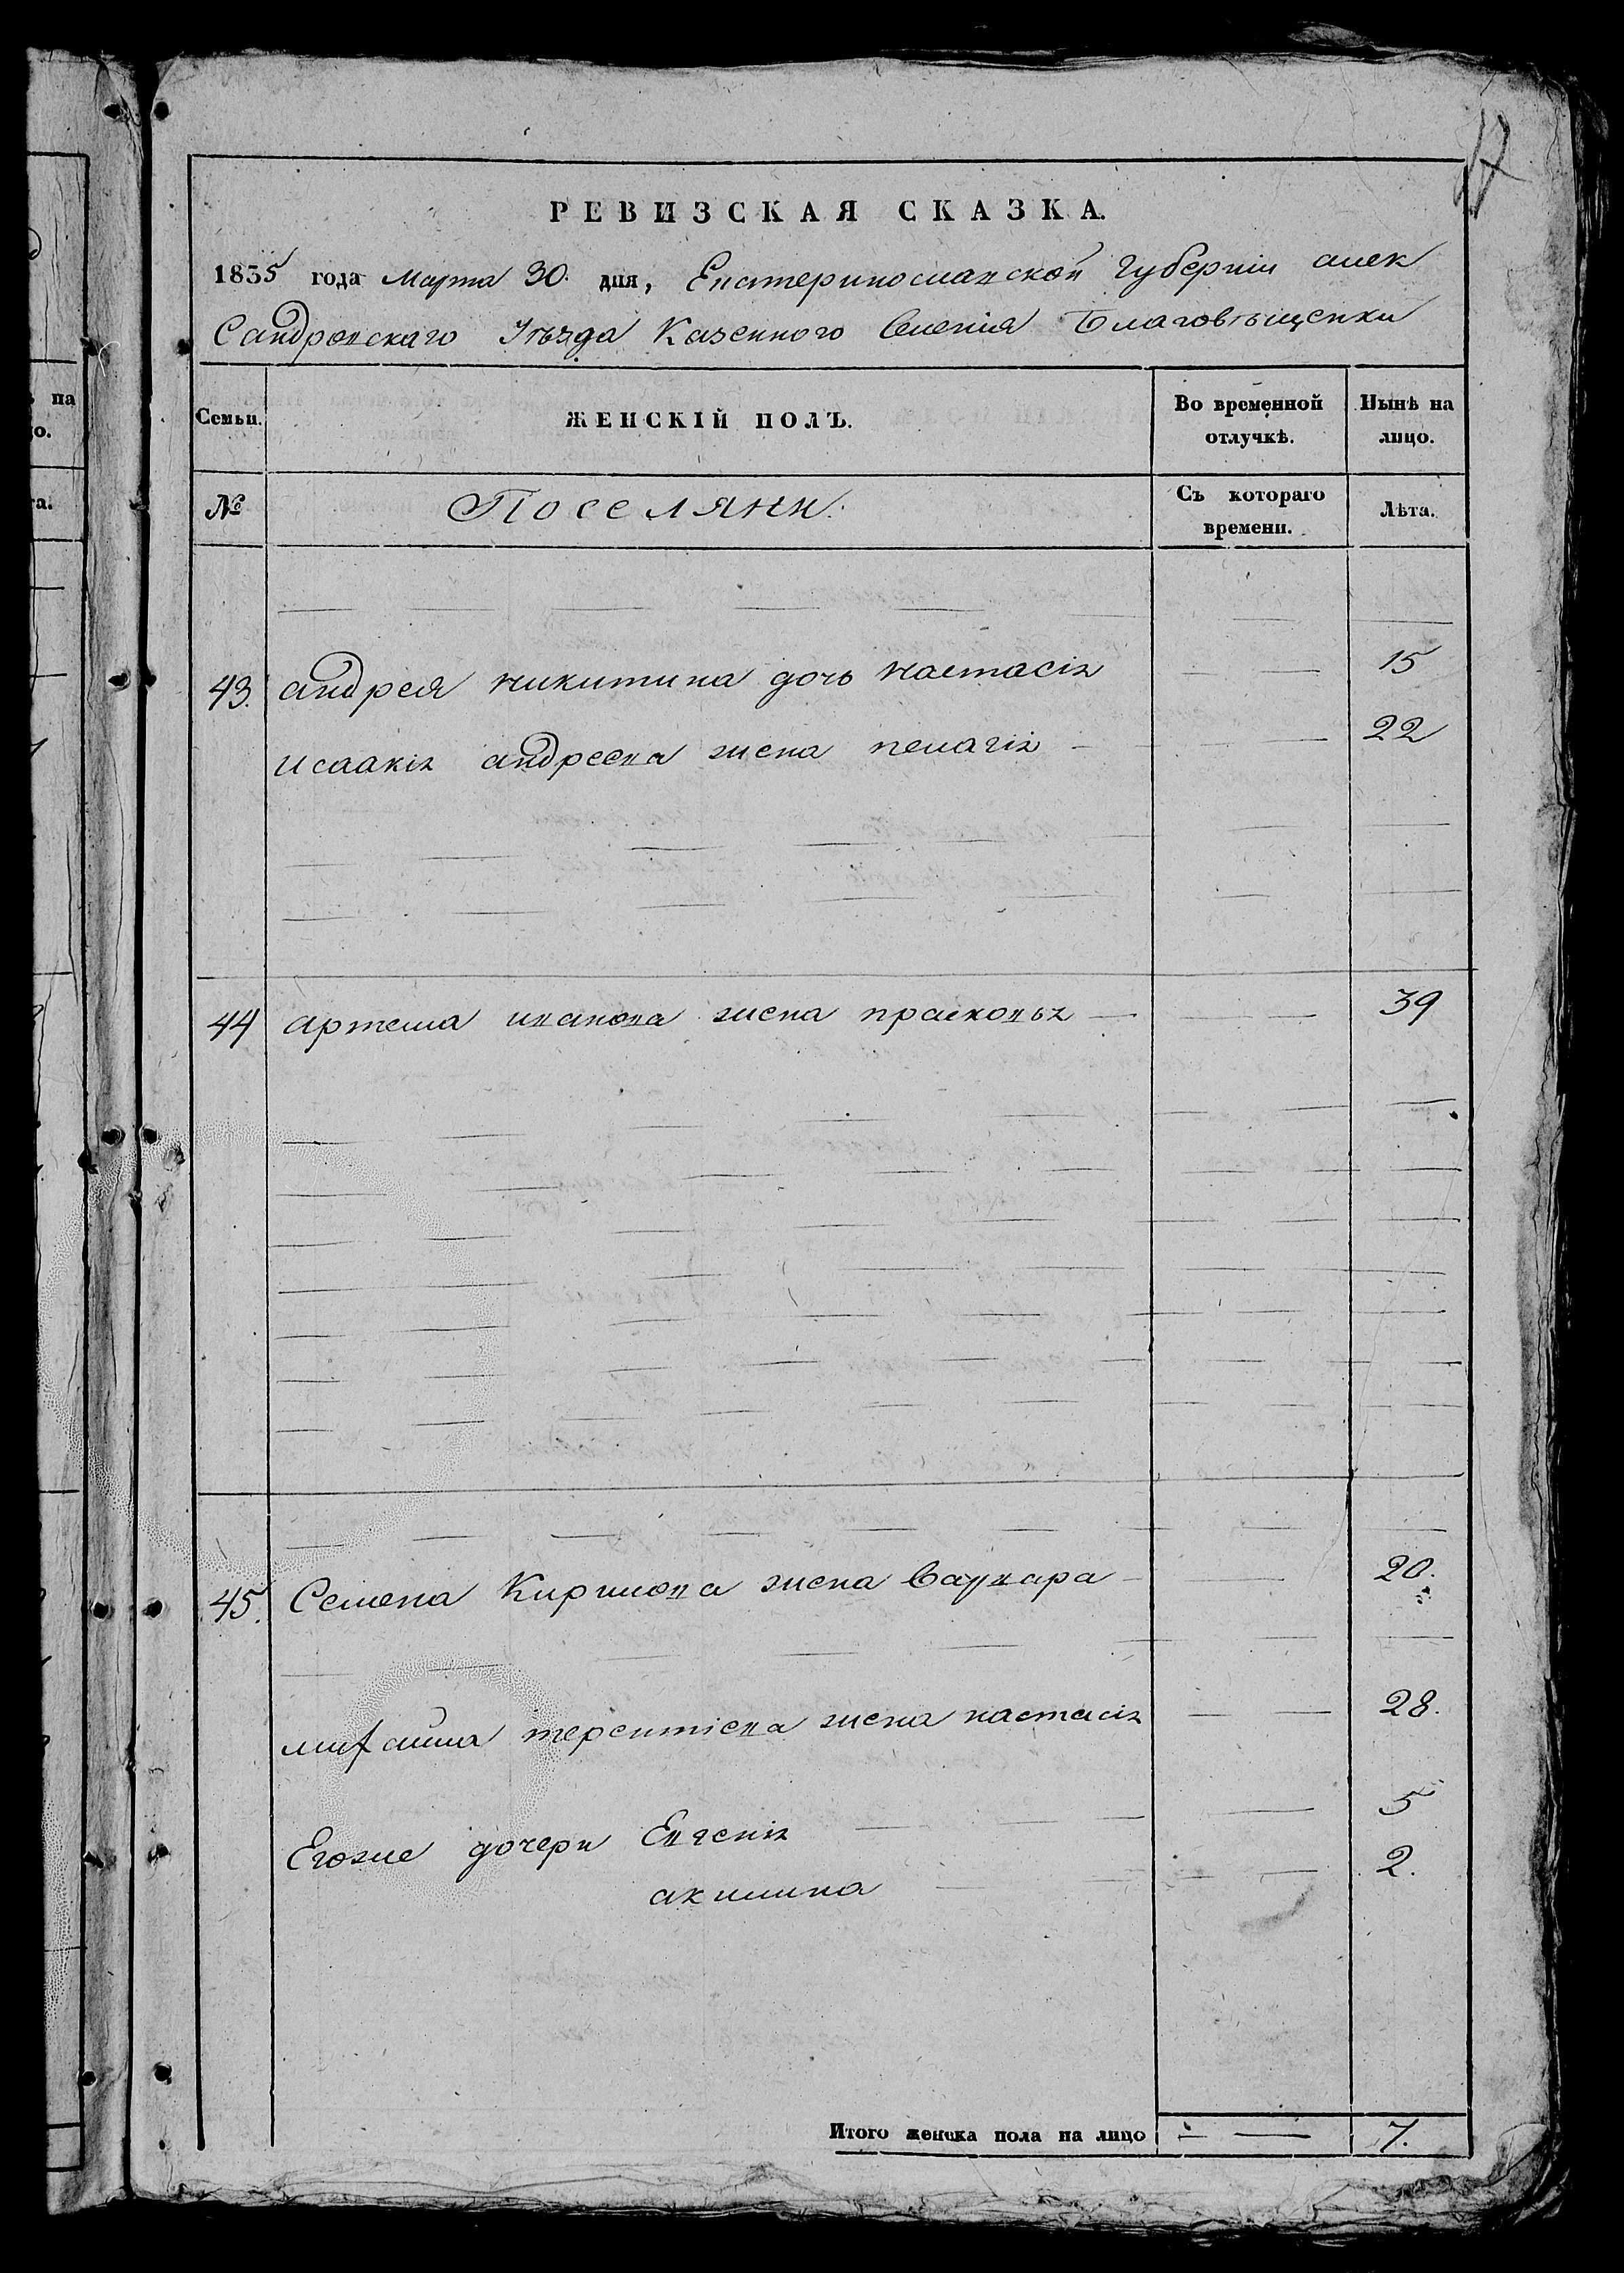 17
РЕВИЗСКАЯ СКАЗКА.
1835 года Марта 30. дня, Екатеринославской Губерніи алек
Сандровскаго Уѣзда Казенного Селенія Благовѣщенки
Семьи. ЖЕНСКІЙ ПОЛЪ. Во временной отлучкѣ. Нынѣ на лицо.
№ Поселяни. Съ котораго времени. Лѣта.
43. андрея никитина дочь настасія 15
исаакія андреева жена пелагія 22
44 артема иванова жена прасковья 39
45. Семена Кирилова жена Варвара 20.
михайла терентіева жена настасія 28.
Егоже дочери Евгенія 5
акилина 2.
Итого женска пола на лицо 7.
на
о.
та.